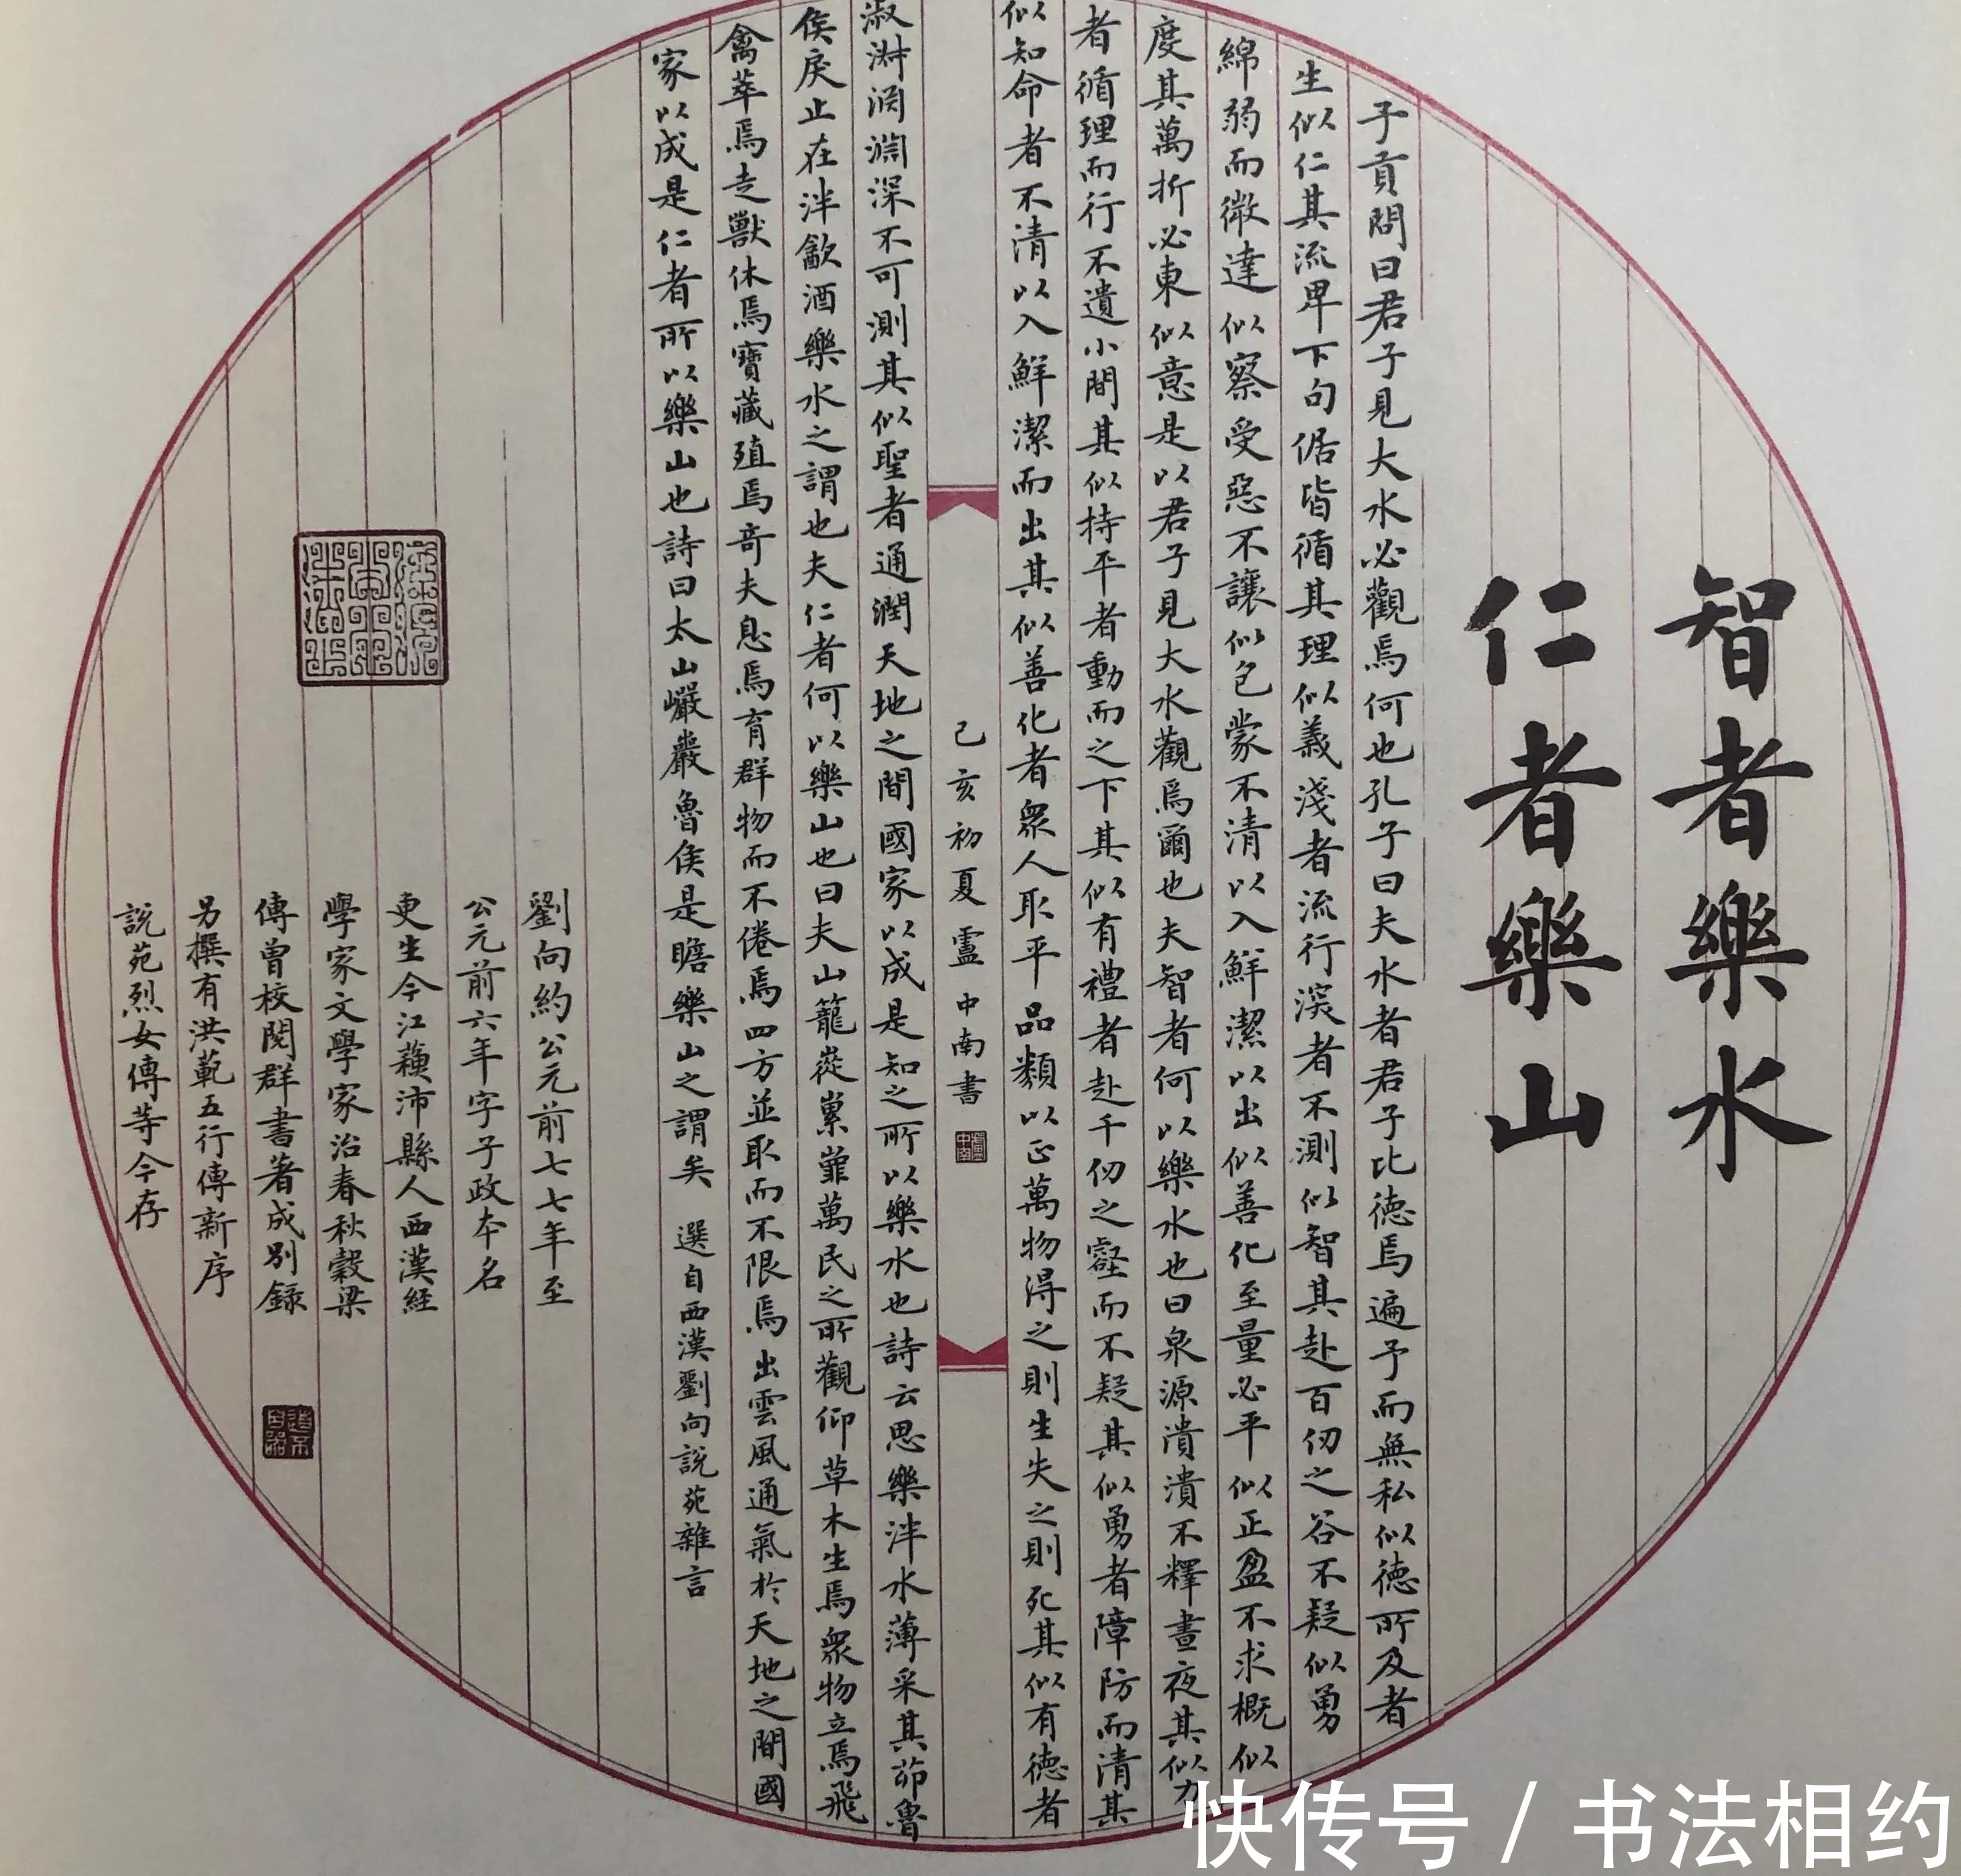 智者樂水
仁者樂山
子貢問曰君子見大水必觀焉何也孔子曰夫水者君子比德焉遍予而無私似德所及者
生似仁其流卑下句倨皆循其理似義淺者流行深者不測似智其赴百仞之谷不疑似勇
綿弱而微達似察受惡不讓似包蒙不清以入鮮潔以出似善化至量必平似正盈不求概似
度其萬折必東似意是以君子見大水觀焉爾也夫智者何以樂水也曰泉源潰潰不釋晝夜其似力
者循理而行不遺小間其似持平者動而之下其似有禮者赴千仞之壑而不疑其似勇者障防而清其
似知命者不清以入鮮潔而出其似善化者眾人取平品類以正萬物得之則生失之則死其似有德者
己亥初夏盧中南書
淑淵深不可測其似聖者通潤天地之間國家以成是知之所以樂水也詩云思樂泮水薄采其茆魯
侯戾止在泮飲酒樂水之謂也夫仁者何以樂山也曰夫山巃嵸累嶵萬民之所觀仰草木生焉眾物立焉飛
禽萃焉走獸休焉寶藏殖焉奇夫息焉育群物而不倦焉四方並取而不限焉出雲風通氣於天地之間國
家以成是仁者所以樂山也詩曰太山巖巖魯侯是瞻樂山之謂矣 選自西漢劉向說苑雜言
劉向約公元前七七年至
公元前六年字子政本名
更生今江蘇沛縣人西漢經
學家文學家治春秋穀梁
傳曾校閱群書著成別錄
另撰有洪範五行傳新序
說苑烈女傳等今存
快传号 / 书法相约